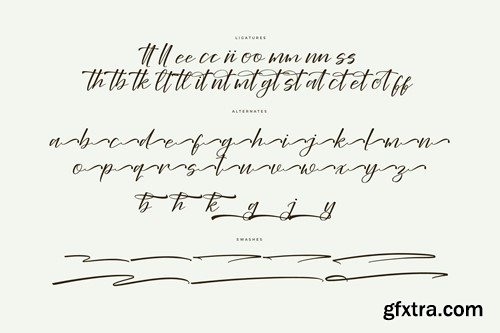 LIGATURES
tt ll ee cc ii oo mm nn ss
th tb tk lt tl it nt mt gt st at ct et ot ff
ALTERNATES
a b c d e f g h i j k l m n
o p q r s t u v w x y z
b h k g j y
SWASHES
gfxtra.com